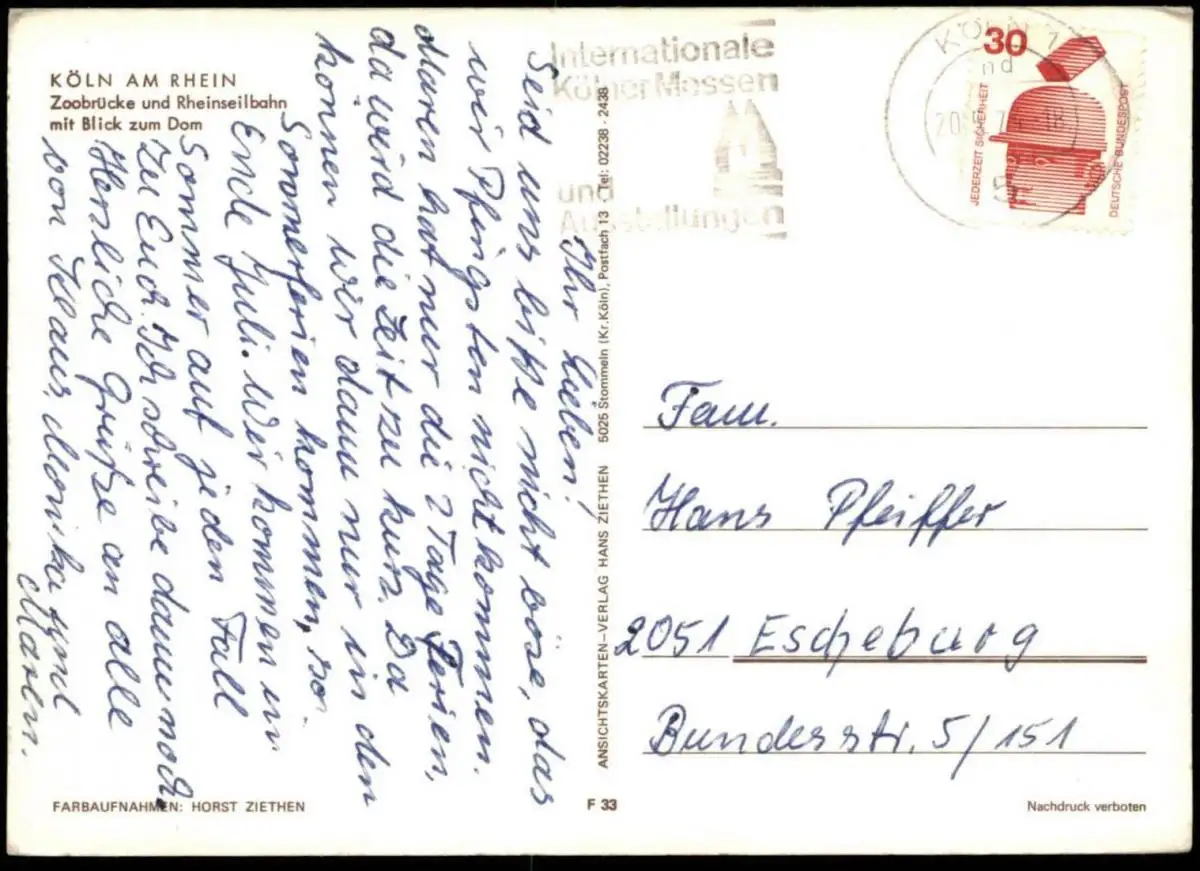 KÖLN AM RHEIN
Zoobrücke und Rheinseilbahn
mit Blick zum Dom
Ihr Lieben!
Seid uns bitte nicht böse, das
wir Pfingsten nicht kommen.
Maren hat nur die 2 Tage Ferien,
da wird die Zeit zu kurz. Da
können wir dann nur in den
Sommerferien kommen, so
Ende Juli. Wir kommen im
Sommer auf jeden Fall
zu Euch. Ich schreibe dann noch.
Herzliche Grüße an alle
von Klaus, Monika und
Maren.
FARBAUFNAHMEN: HORST ZIETHEN
ANSICHTSKARTEN-VERLAG HANS ZIETHEN 5025 Stommeln (Kr. Köln), Postfach 13 Tel: 02238 - 2438
F 33
Internationale
Kölner Messen
und
Ausstellungen
KÖLN 1
30
JEDERZEIT SICHERHEIT
DEUTSCHE BUNDESPOST
Fam.
Hans Pfeiffer
2051 Escheburg
Bundesstr. 5/151
Nachdruck verboten